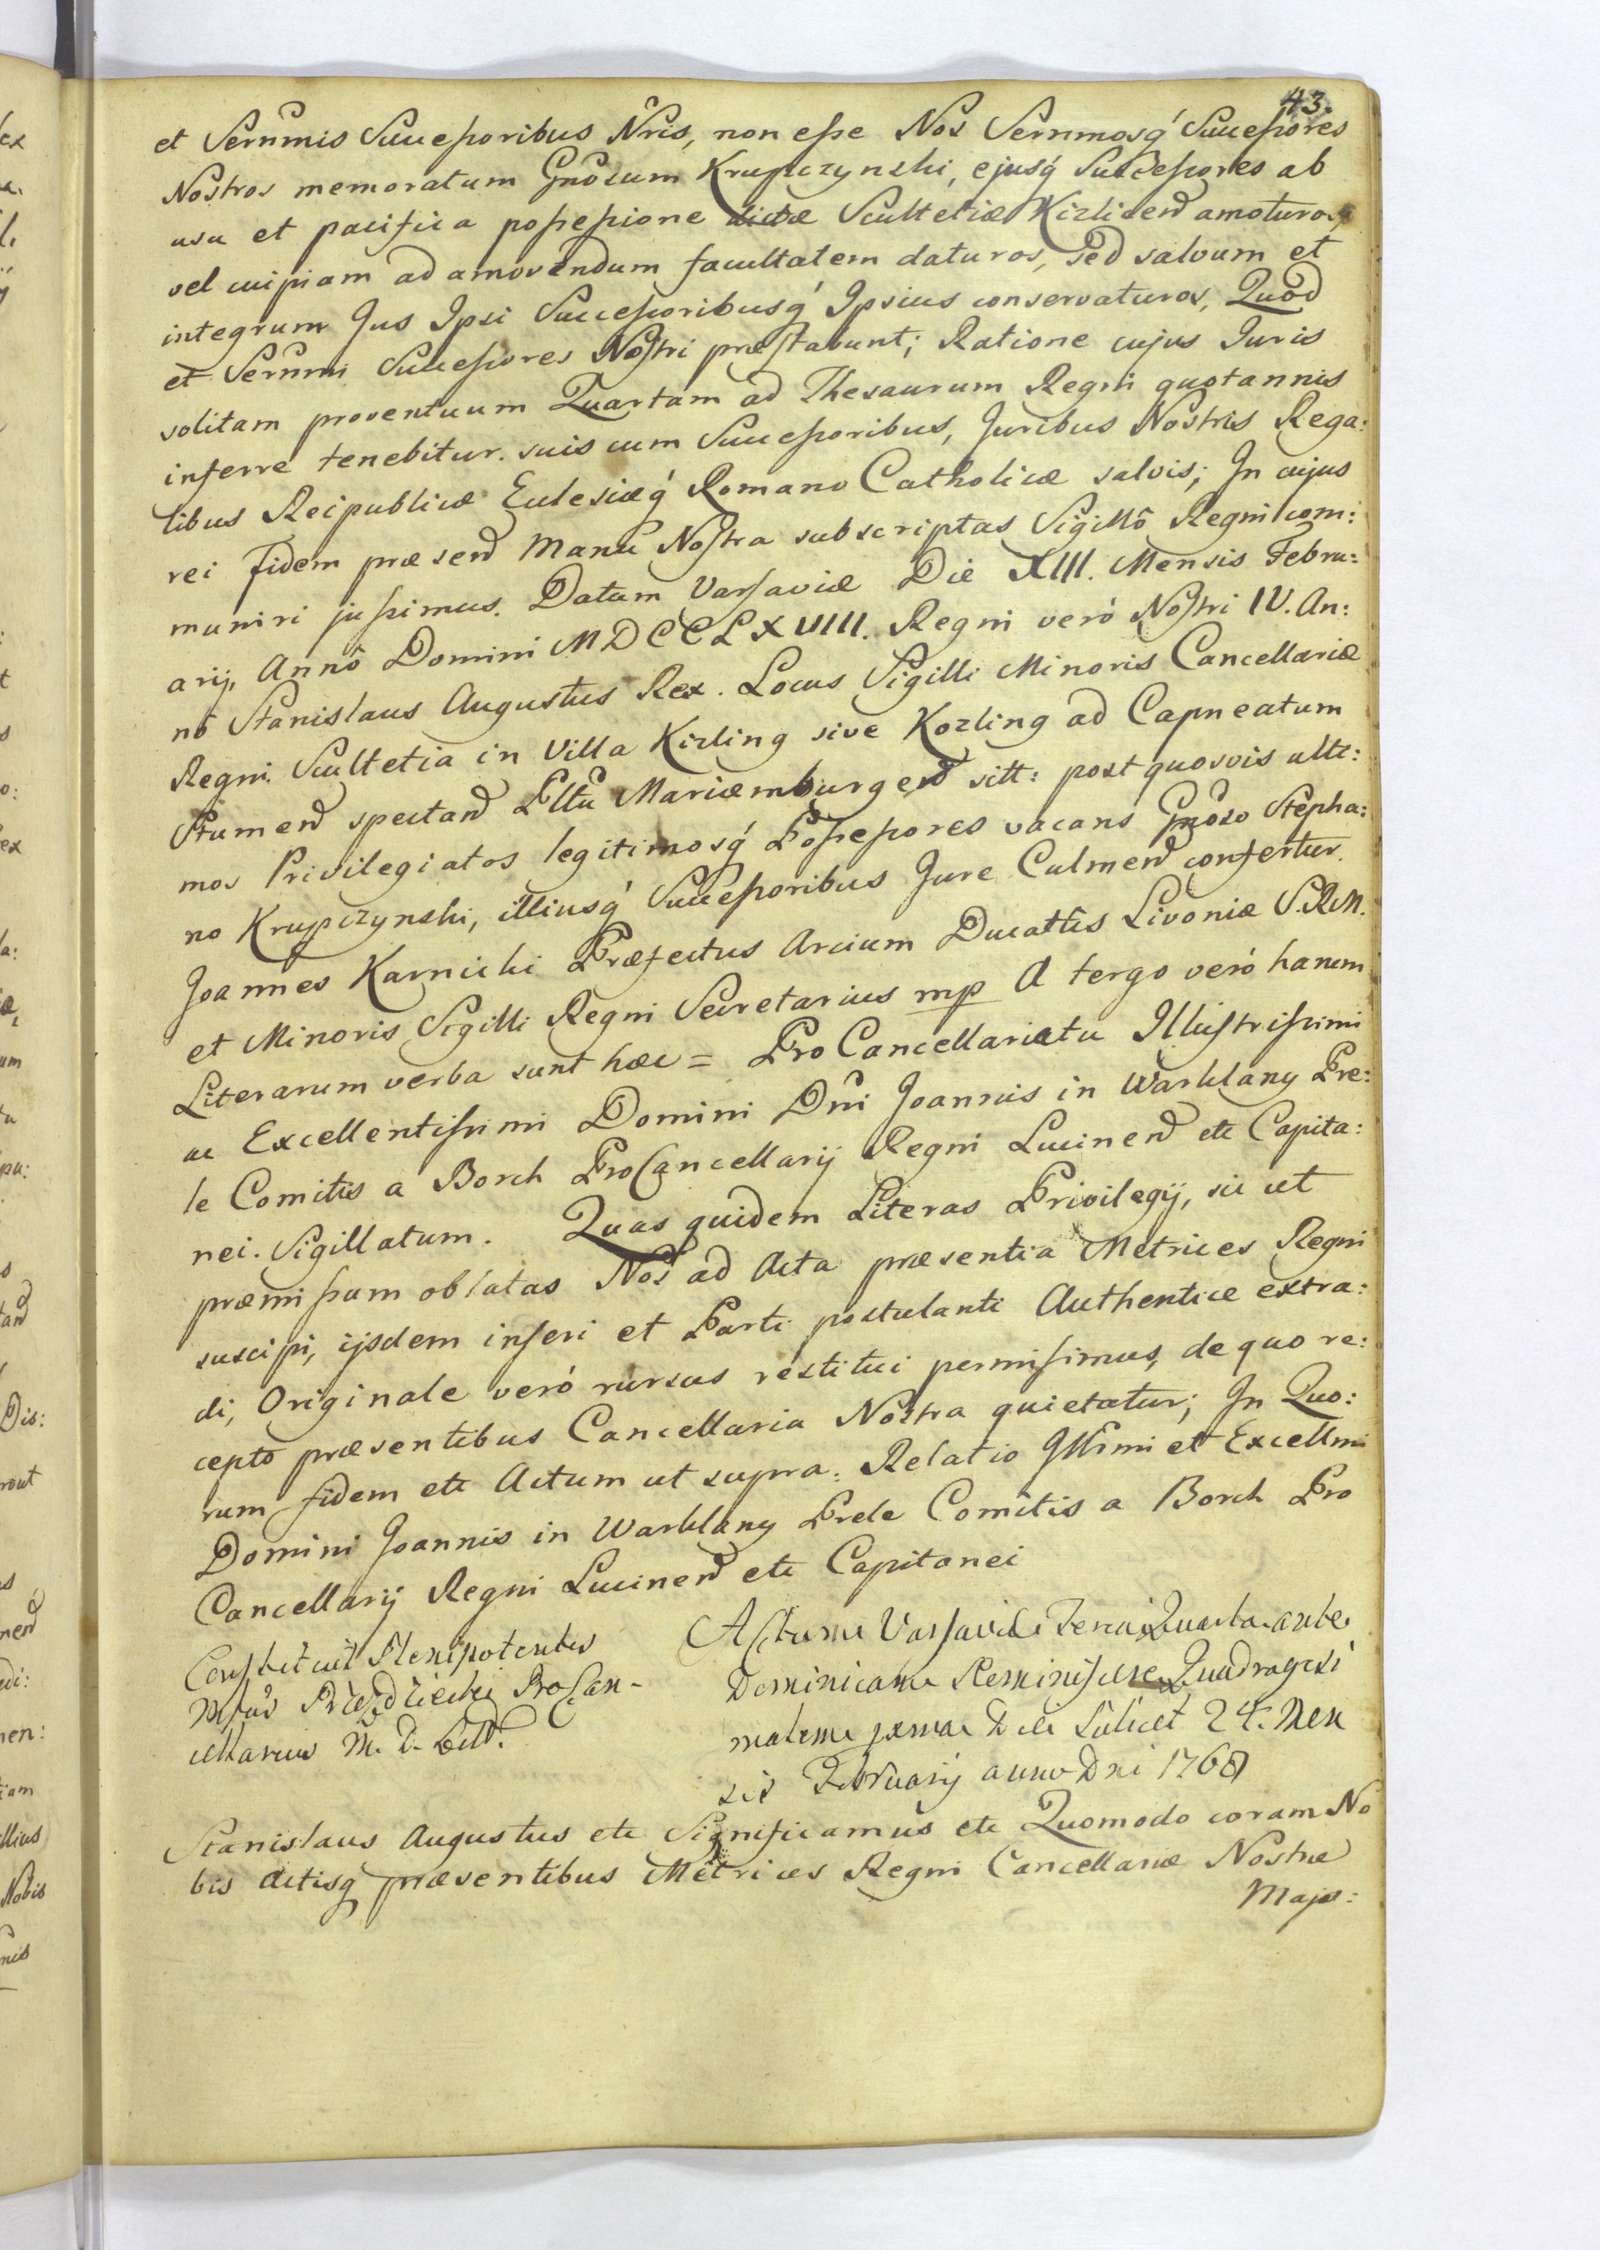 43.
et Sernmis Successoribus Nris, non esse Nos Sernmosq́ Successores
Nostros memoratum Gnosum Krupczynski, ejusq́ Successores ab
usu et pacifica possessione dictæ Scultetiæ Kizlicen amoturos,
vel cuipiam ad amovendum facultatem daturos, sed salvum et
integrum Jus Ipsi Successoribusq́ Ipsius conservaturos, Quod
et Sernmi Successores Nostri præstabunt; Ratione cujus Juris
solitam proventuum Quartam ad Thesaurum Regni quotannis
inferre tenebitur. suis cum Successoribus, Juribus Nostris Rega:
libus Reipublicæ Eclesiæq́ Romano Catholicæ salvis; In cujus
rei Fidem præsen Manu Nostra subscriptas Sigillô Regni com:
muniri jussimus. Datum Varsaviæ Die XIII. Mensis Febru:
arij, Annô Domini MDCCLXVIII. Regni veró Nostri IV. An:
nô Stanislaus Augustus Rex. Locus Sigilli Minoris Cancellariæ
Regni. Scultetia in Villa Kizling sive Kozling ad Capneatum
Stumen spectan Plttu Mariæmburgen sitt: post quosvis ulti:
mos Privilegiatos legitimosq́ Possessores vacans Gnoso Stepha:
no Krupczynski, illiusq́ Successoribus Jure Culmen confertur.
Joannes Karnicki Præfectus Arcium Ducattûs Livoniæ S.R.M.
et Minoris Sigilli Regni Secretarius mp A tergo veró harum
Literarum verba sunt hæc = Pro Cancellariatu Illustrissimi
ac Excellentissimi Domini Dni Joannis in Warklany Pre:
le Comitis a Borch ProCancellarij Regni Lucinen etc Capita:
nei. Sigillatum. Quas quidem Literas Privilegij, sic ut
præmissum oblatas Nos ad Acta præsentia Metrices Regni
suscipi, ijsdem inseri et Parti postulanti Authenticæ extra:
di, Originale veró rursus restitui permisimus, de quo re:
cepto præsentibus Cancellaria Nostra quietatur; In Quo:
rum fidem etc Actum ut supra. Relatio Illrmi et Excellmi
Domini Joannis in Warklany Prele Comitis a Borch Pro
Cancellarij Regni Lucinen etc Capitanei
Constituit Plenipotentes
ProCan-
cellarius M. D. Litt.
Actum Varsaviæ Feria Quarta ante
Dominicam Reminiscere Quadragesi
malem prima Die Scilicet 24. Men
sis Februarij anno Dni 1768
Stanislaus Augustus etc Significamus etc Quomodo coram No
bis Actisq́ præsentibus Metrices Regni Cancellariæ Nostræ
Majo: